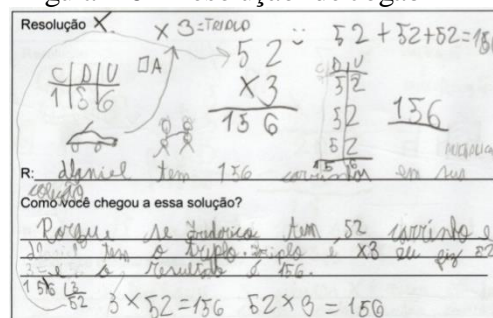 Resolução X.
X 3 = TRIPLO
52 + 52 + 52 = 156
C D U
1 5 6
A
52
X3
156
C D U
52
52
52
156
156
R: daniel tem 156 carrinhos em sua
coleção
Como você chegou a essa solução?
Porque se frederico tem 52 carrinho e
daniel tem o triplo. triplo é x3 ele fiz 52
e o resultado é 156.
156 3
52
3 x 52 = 156 52 x 3 = 156